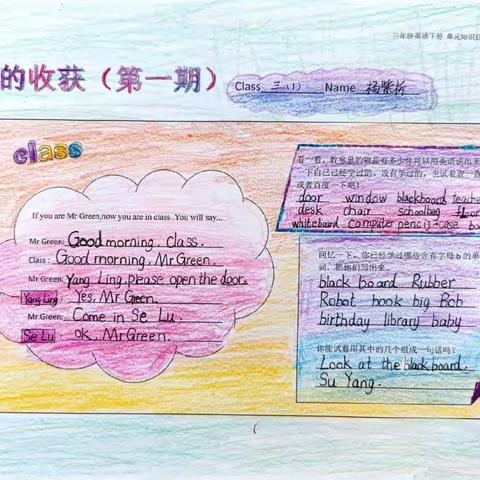 三年级英语下册 单元知识自
的收获（第一期）
Class 三(1) Name 杨紫折
class
If you are Mr Green,now you are in class .You will say...
Mr Green: Good morning, Class.
Class : Good morning, Mr Green.
Mr Green: Yang Ling, please open the door.
Yang Ling Yes, Mr Green.
Mr Green: Come in Se Lu.
Se Lu: ok, Mr Green.
看一看，教室里的物品有多少你可以用英语说出来
一下自己已经学过的，没有学过的，也试着查一查
或者百度一下吧！
door window blackboard teache
desk chair schoolbag floor
whiteboard computer pencil-case b
回忆一下，你已经学过哪些含有字母 b 的单
词，把他们写出来。
black board Rubber
Robot book big Bob
birthday library baby
你能试着用其中的几个组成一句话吗？
Look at the blackboard.
Su Yang.